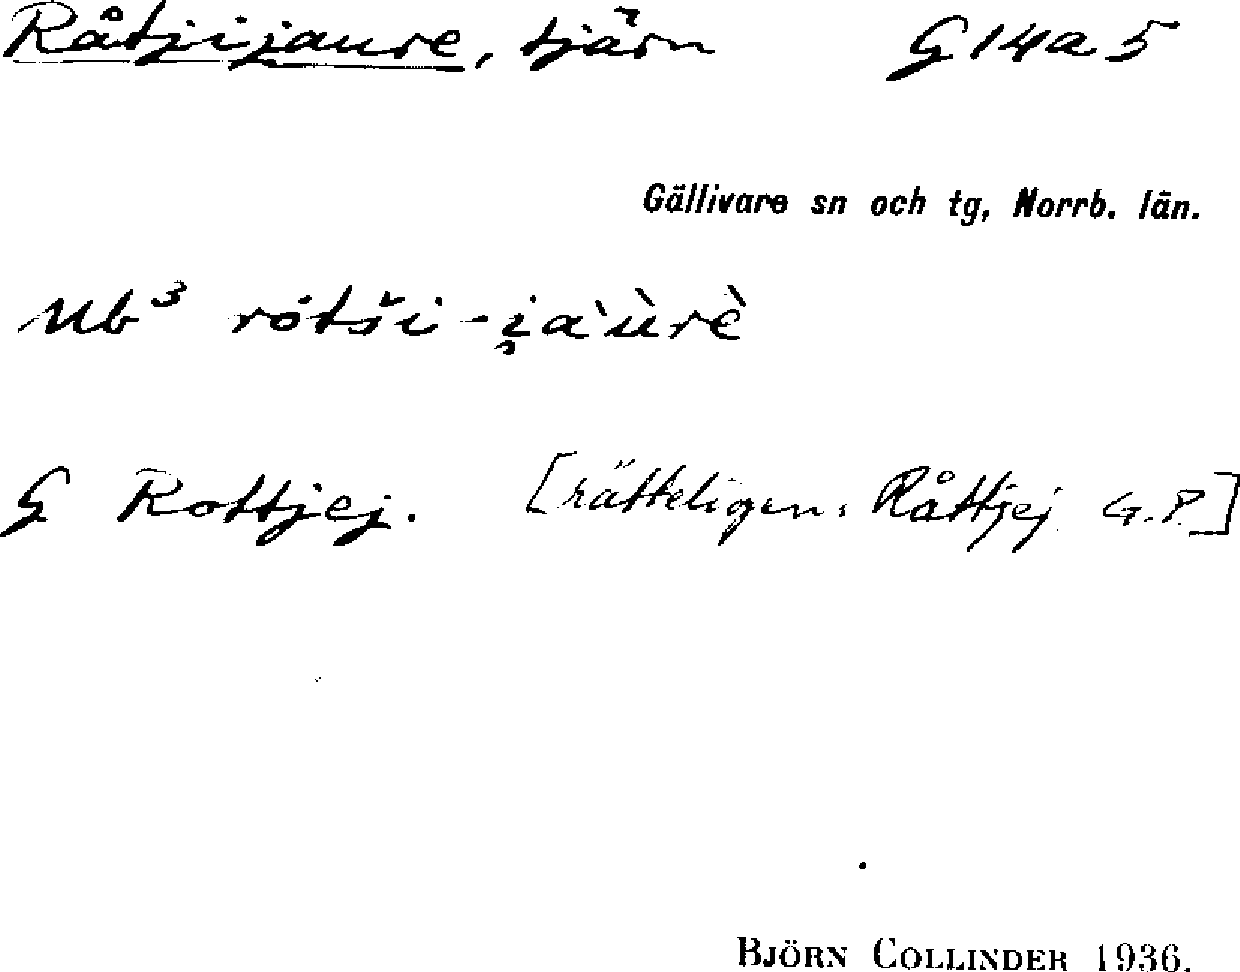 Råtjijaure, tjärn G14a5
Gällivare sn och tg, Norrb. län.
Ub³ rótši-i̯a'ùrè
G Rottjej. [rätteligen: Råttjej G.P.]
BJÖRN COLLINDER 1936.